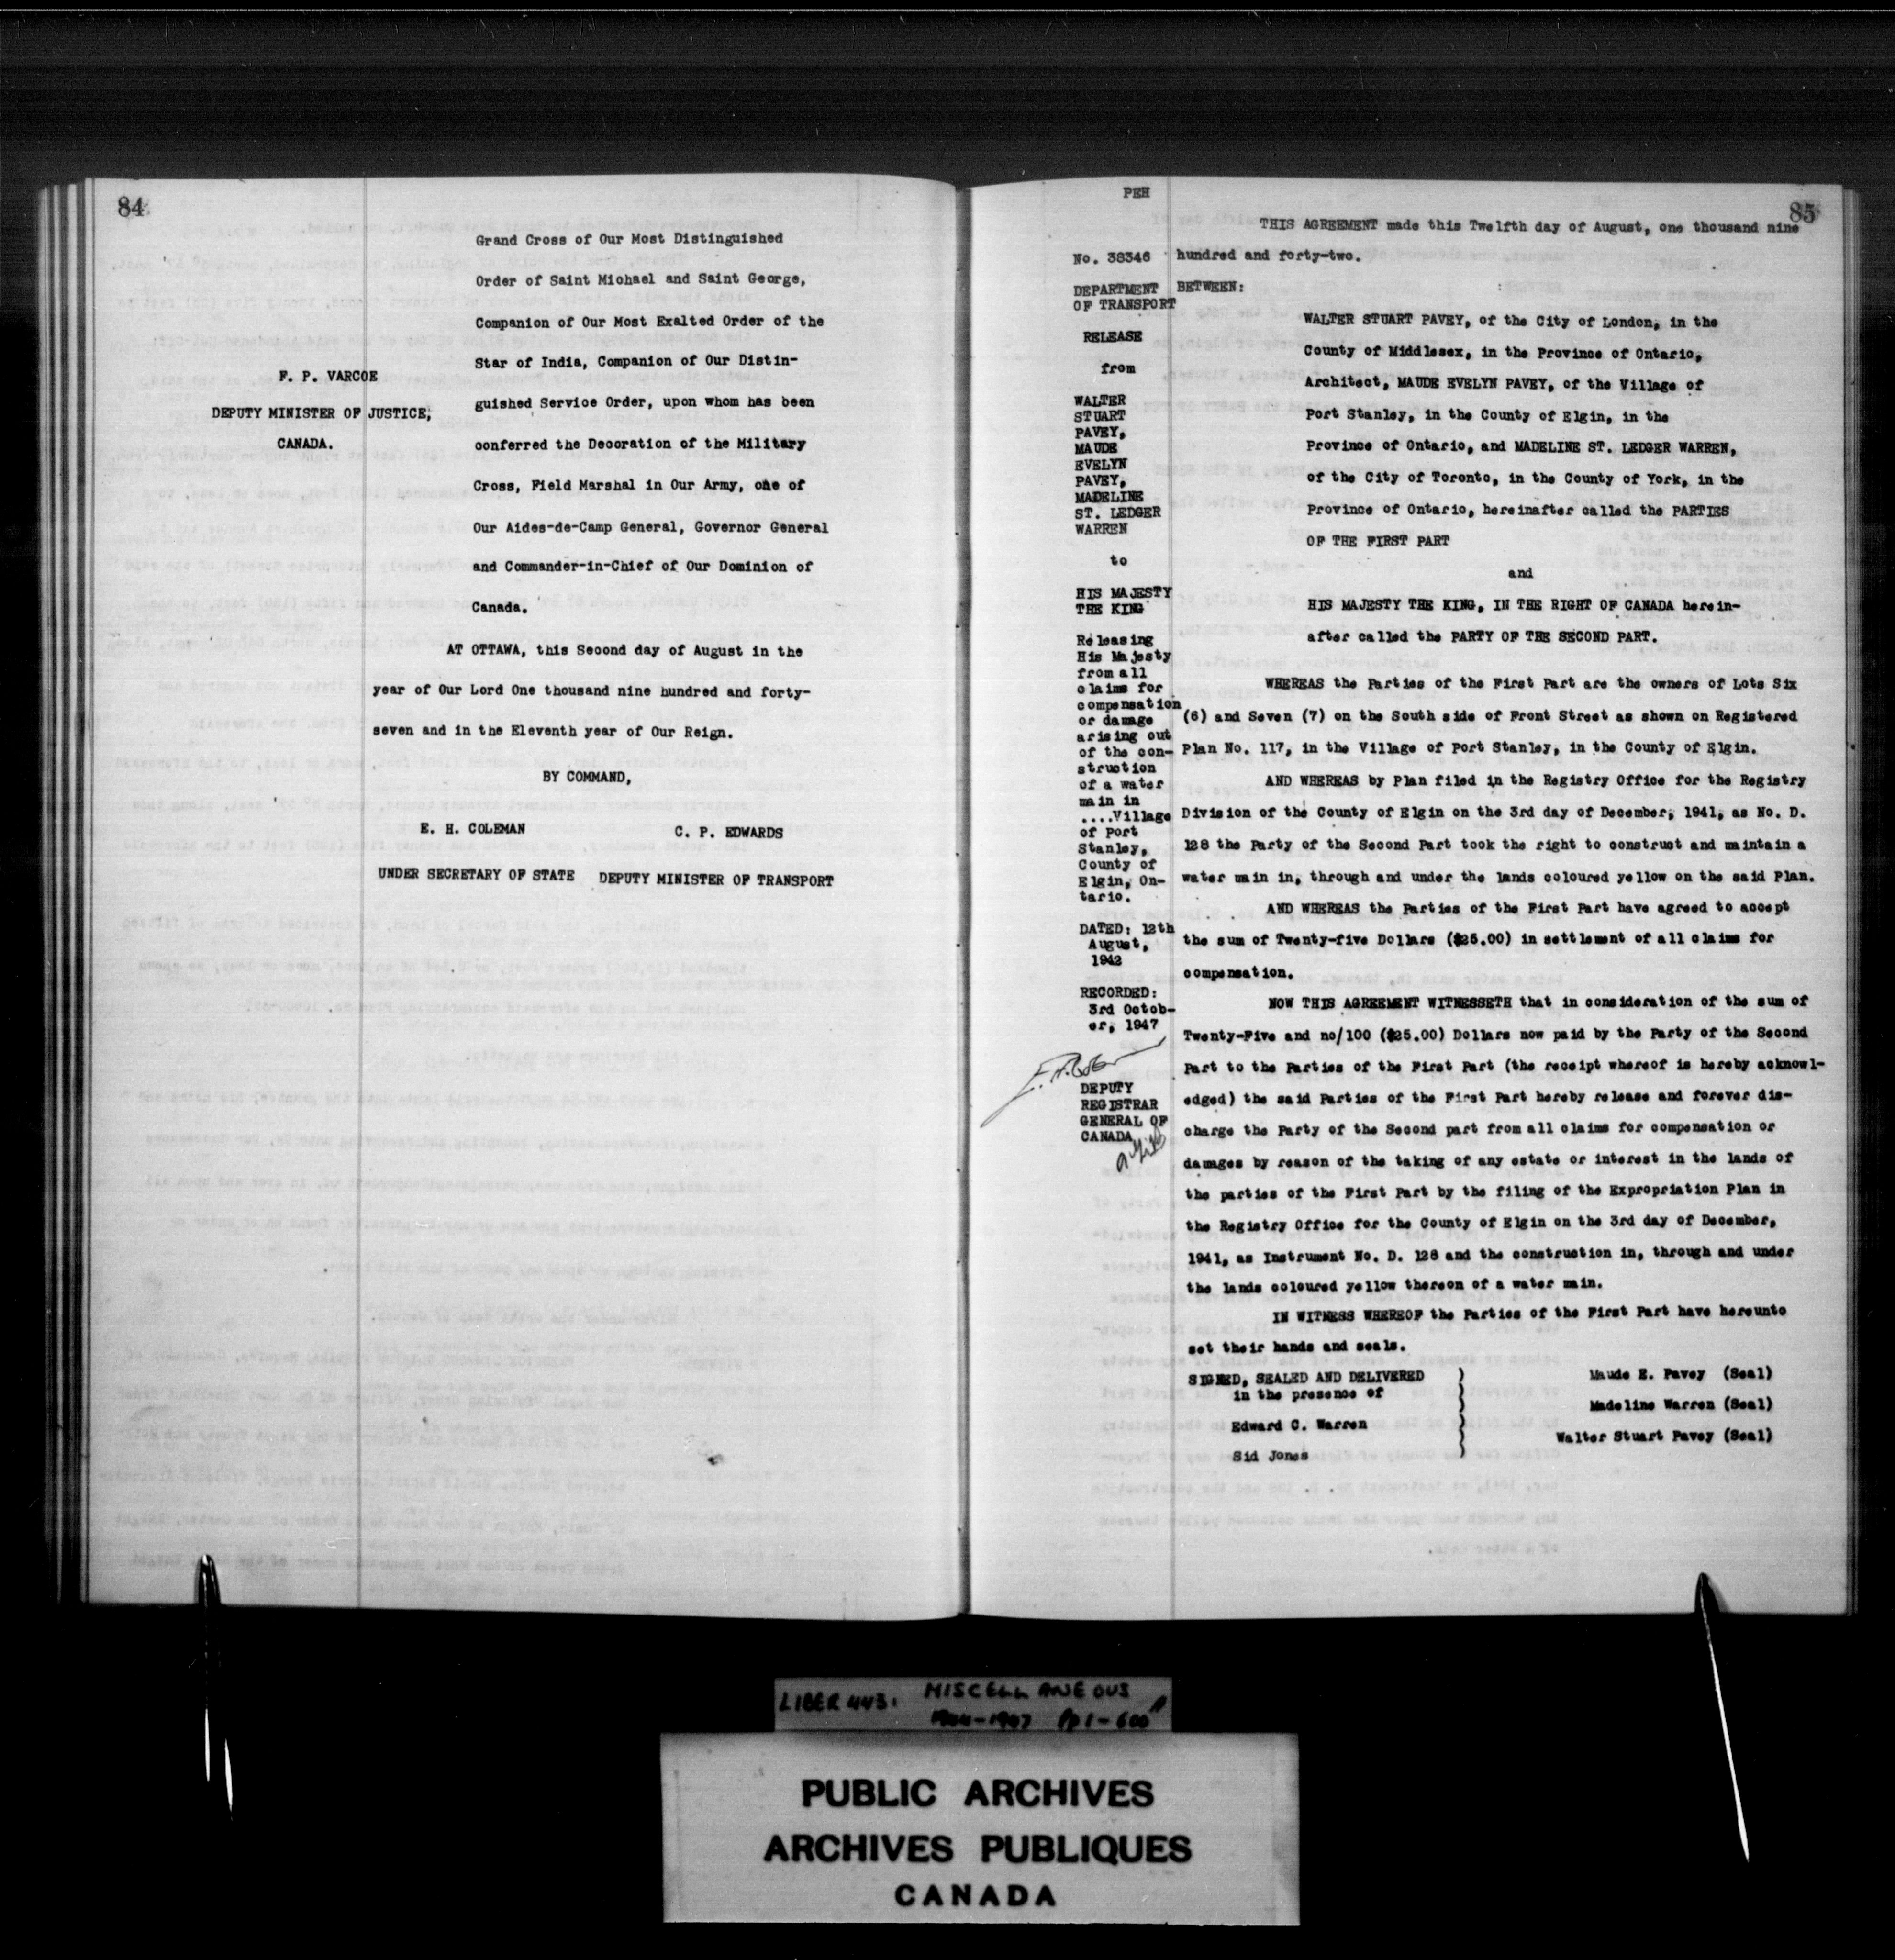 84
Grand Cross of Our Most Distinguished
Order of Saint Michael and Saint George,
Companion of Our Most Exalted Order of the
Star of India, Companion of Our Distin-
guished Service Order, upon whom has been
conferred the Decoration of the Military
Cross, Field Marshal in Our Army, one of
Our Aides-de-Camp General, Governor General
and Commander-in-Chief of Our Dominion of
Canada.
F. P. VARCOE
DEPUTY MINISTER OF JUSTICE,
CANADA.
AT OTTAWA, this Second day of August in the
year of Our Lord One thousand nine hundred and forty-
seven and in the Eleventh year of Our Reign.
BY COMMAND,
E. H. COLEMAN
C. P. EDWARDS
UNDER SECRETARY OF STATE
DEPUTY MINISTER OF TRANSPORT
PEH
85
No. 38346
DEPARTMENT
OF TRANSPORT
RELEASE
from
WALTER
STUART
PAVEY,
MAUDE
EVELYN
PAVEY,
MADELINE
ST. LEDGER
WARREN
to
HIS MAJESTY
THE KING
Releasing
His Majesty
from all
claims for
compensation
or damage
arising out
of the con-
struction
of a water
main in
....Village
of Port
Stanley,
County of
Elgin, On-
tario.
DATED: 12th
August,
1942
RECORDED:
3rd Octob-
er, 1947
DEPUTY
REGISTRAR
GENERAL OF
CANADA
THIS AGREEMENT made this Twelfth day of August, one thousand nine
hundred and forty-two.
BETWEEN:
WALTER STUART PAVEY, of the City of London, in the
County of Middlesex, in the Province of Ontario,
Architect, MAUDE EVELYN PAVEY, of the Village of
Port Stanley, in the County of Elgin, in the
Province of Ontario, and MADELINE ST. LEDGER WARREN,
of the City of Toronto, in the County of York, in the
Province of Ontario, hereinafter called the PARTIES
OF THE FIRST PART
and
HIS MAJESTY THE KING, IN THE RIGHT OF CANADA herein-
after called the PARTY OF THE SECOND PART.
WHEREAS the Parties of the First Part are the owners of Lots Six
(6) and Seven (7) on the South side of Front Street as shown on Registered
Plan No. 117, in the Village of Port Stanley, in the County of Elgin.
AND WHEREAS by Plan filed in the Registry Office for the Registry
Division of the County of Elgin on the 3rd day of December, 1941, as No. D.
128 the Party of the Second Part took the right to construct and maintain a
water main in, through and under the lands coloured yellow on the said Plan.
AND WHEREAS the Parties of the First Part have agreed to accept
the sum of Twenty-five Dollars ($25.00) in settlement of all claims for
compensation.
NOW THIS AGREEMENT WITNESSETH that in consideration of the sum of
Twenty-Five and no/100 ($25.00) Dollars now paid by the Party of the Second
Part to the Parties of the First Part (the receipt whereof is hereby acknowl-
edged) the said Parties of the First Part hereby release and forever dis-
charge the Party of the Second part from all claims for compensation or
damages by reason of the taking of any estate or interest in the lands of
the parties of the First Part by the filing of the Expropriation Plan in
the Registry Office for the County of Elgin on the 3rd day of December,
1941, as Instrument No. D. 128 and the construction in, through and under
the lands coloured yellow thereon of a water main.
IN WITNESS WHEREOF the Parties of the First Part have hereunto
set their hands and seals.
SIGNED, SEALED AND DELIVERED
in the presence of
Edward C. Warren
Sid Jones
Maude E. Pavey (Seal)
Madeline Warren (Seal)
Walter Stuart Pavey (Seal)
LIBER 443: MISCELLANEOUS
1944-1947 Pp 1-600
PUBLIC ARCHIVES
ARCHIVES PUBLIQUES
CANADA